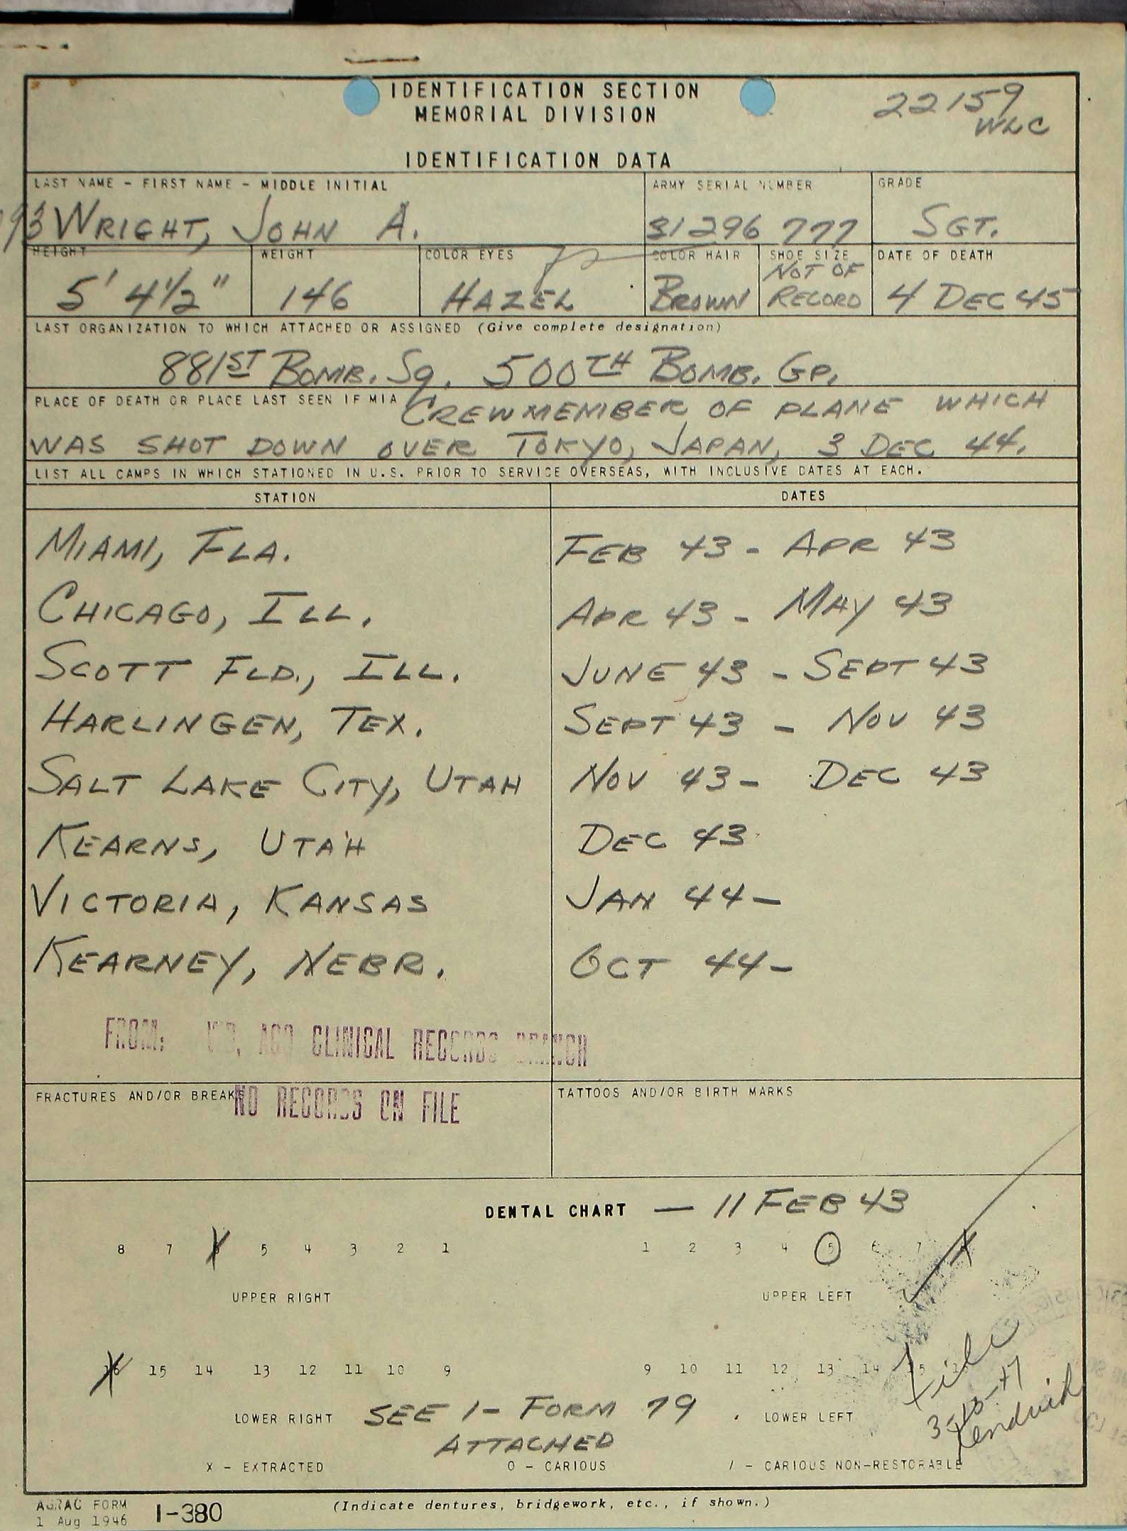 IDENTIFICATION SECTION
MEMORIAL DIVISION
22159
WLC
IDENTIFICATION DATA
LAST NAME - FIRST NAME - MIDDLE INITIAL ARMY SERIAL NUMBER GRADE
WRIGHT, JOHN A. 31296 777 SGT.
HEIGHT WEIGHT COLOR EYES COLOR HAIR SHOE SIZE DATE OF DEATH
5' 4½" 146 HAZEL BROWN NOT OF RECORD 4 DEC 45
LAST ORGANIZATION TO WHICH ATTACHED OR ASSIGNED (Give complete designation)
881ST BOMB. SQ. 500TH BOMB. GP.
PLACE OF DEATH OR PLACE LAST SEEN IF MIA CREWMEMBER OF PLANE WHICH
WAS SHOT DOWN OVER TOKYO, JAPAN, 3 DEC 44.
LIST ALL CAMPS IN WHICH STATIONED IN U.S. PRIOR TO SERVICE OVERSEAS, WITH INCLUSIVE DATES AT EACH.
STATION DATES
MIAMI, FLA. FEB 43 - APR 43
CHICAGO, ILL. APR 43 - MAY 43
SCOTT FLD., ILL. JUNE 43 - SEPT 43
HARLINGEN, TEX. SEPT 43 - NOV 43
SALT LAKE CITY, UTAH NOV 43 - DEC 43
KEARNS, UTAH DEC 43
VICTORIA, KANSAS JAN 44 -
KEARNEY, NEBR. OCT 44 -
FROM: AGO CLINICAL RECORDS BRANCH
FRACTURES AND/OR BREAKS TATTOOS AND/OR BIRTH MARKS
NO RECORDS ON FILE
DENTAL CHART — 11 FEB 43
8 7 5 4 3 2 1 1 2 3 4 5 6 7
UPPER RIGHT UPPER LEFT
16 15 14 13 12 11 10 9 9 10 11 12 13 14 15
LOWER RIGHT SEE 1- FORM 79 LOWER LEFT
ATTACHED
File
X - EXTRACTED O - CARIOUS / - CARIOUS NON-RESTORABLE
(Indicate dentures, bridgework, etc., if shown.)
AGRAC FORM
1 Aug 1946 1-380